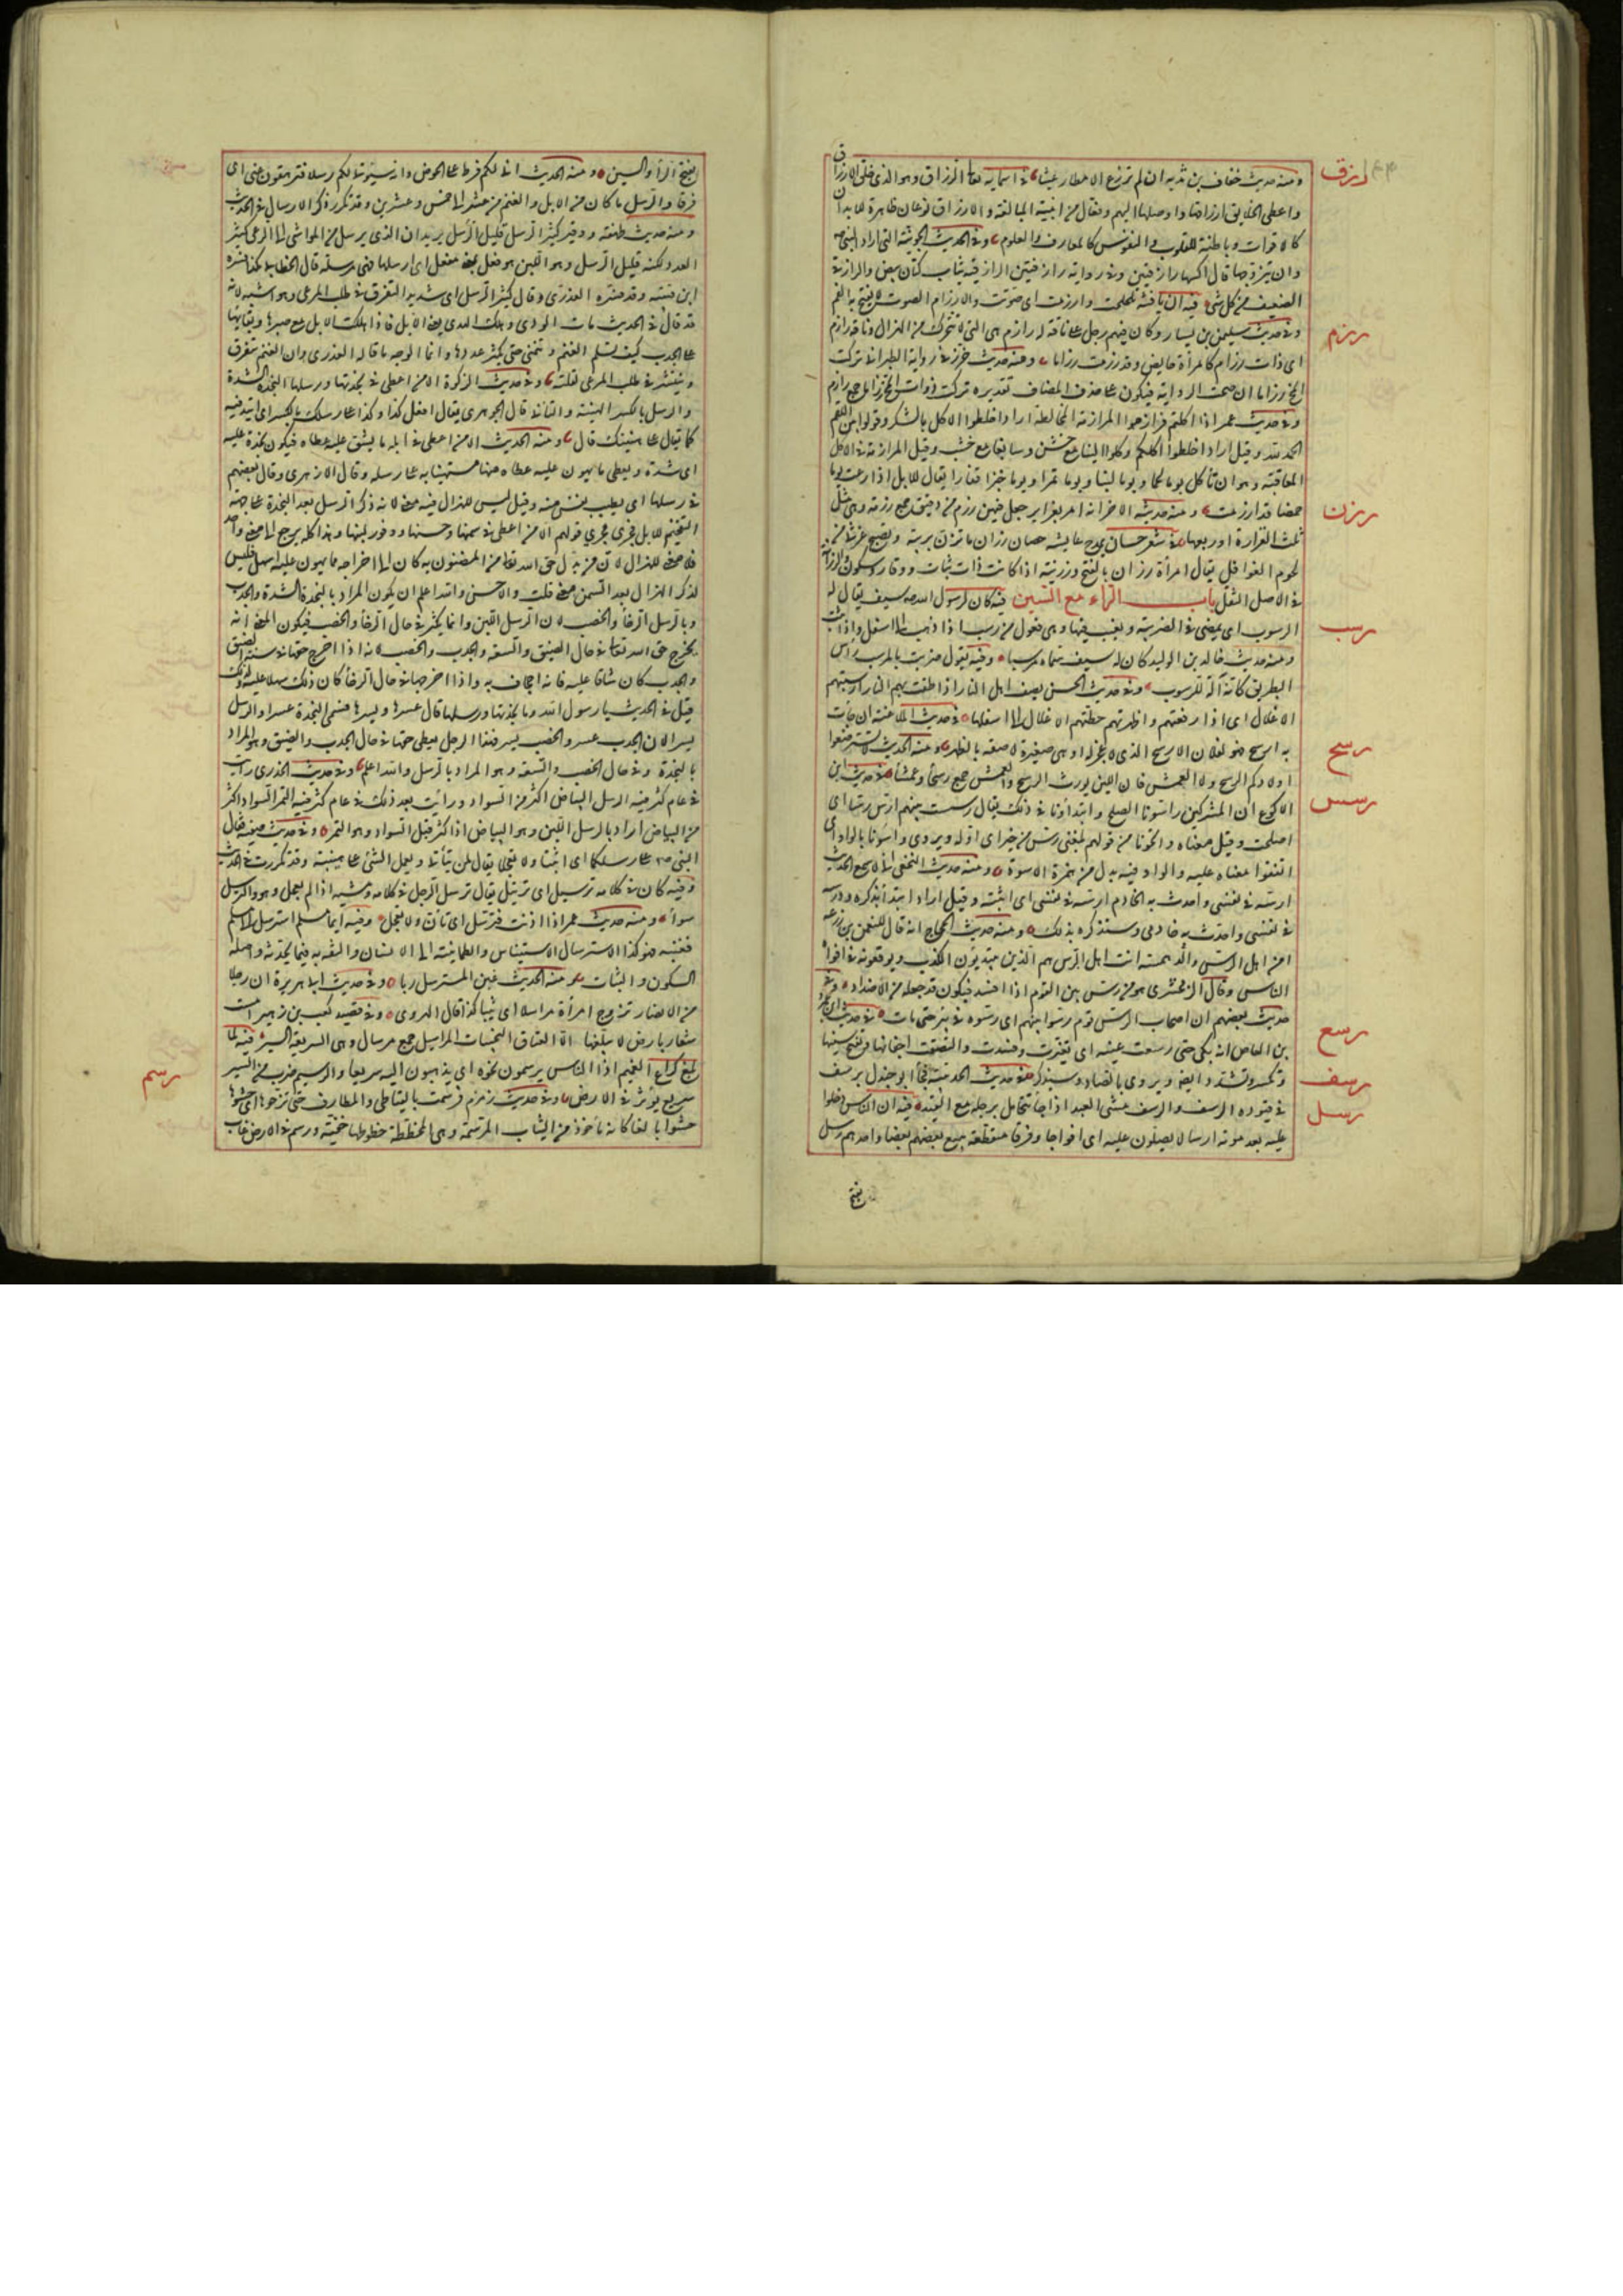 رزق
ومنه حديث خفاف بن ندبه ان لم ترزع الامطار غيثا في اسمايه تعا الرزاق وهو الذي خلق الارزاق
واعطى الخلايق ارزاقها واوصلها اليهم وفعال من ابنية المبالغة والارزاق نوعان ظاهرة للابدان
كالاقوات وباطنة للقلوب والنفوس كالمعارف والعلوم وفي الحديث الجونية التي اراد النبي صم
قال اكسها رازقيين وفي رواية رازقيتين الرازقية ثياب كتان بيض والرازقي
الضعيف من كل شي
رزم
فيه ان ناقته تلحلحت وارزمت اي صوتت والارزام الصوت لا يفتح به الفم
وفي حديث سليمن بن يسار وكان فيهم رجل على ناقة له رازم هي التي لا تتحرك من الهزال وناقة رازم
اي ذات رزام كامرأة حايض وقد رزمت رزاما ومنه حديث خزيمة في رواية الطبراني تركت
المخ رزاما ان صحت الرواية فيكون على حذف المضاف تقديره تركت ذوات المخ رزاما جمع رازم
وفي حديث عمر اذا اكلتم فرازموا المرازمة المخالطة اراد اخلطوا الاكل بالشكر وقولوا بين اللقم
الحمد لله وقيل اراد اخلطوا اكلكم وكلوا لينا مع خشن وسايغا مع خشب وقيل المرازمة في الاكل
المعاقبة وهو ان تأكل يوما لحما ويوما لبنا ويوما تمرا ويوما خبزا قفارا يقال للابل اذا رعت يوما
حمضا قد ارزمت ومنه حديثه الاخر انه امر بغراير جعل فيهن رزم من دقيق جمع رزمة وهي مثل
ثلث الغرارة او ربعها
رزن
في شعر حسان يمدح عايشة حصان رزان ما تزن بريبة وتصبح غرثى من
لحوم الغوافل يقال امرأة رزان بالفتح ورزينة اذا كانت ذات ثبات ووقار وسكون والرزانة
في الاصل الثقل باب الراء مع السين
رسب
فيه كان لرسول الله صم سيف يقال له
الرسوب اي يمضي في الضريبة ويغيب فيها وهي فعول من رسب اذا ذهب الى اسفل واذا ثبت
ومنه حديث خالد بن الوليد كان له سيف سماه مرسبا وفيه يقول ضربت بالمرسب رأس
البطريق كانه آلة للرسوب وفي حديث الحسن يصف اهل النار اذا طفت بهم النار ارسبتهم
الاغلال اي اذا رفعتهم واظهرتهم حطتهم الاغلال الى اسفلها
رسح
في حديث الملاعنة ان جأت
به ارسح فهو لفلان الارسح الذي لا عجز له او هي صغيرة لاصقة بالظهر ومنه الحديث لا تسترضعوا
اولادكم الرسح ولا العمش فان اللبن يورث الرسح والعمش جمع رسحأ وعمشأ
رسس
في حديث ابن
الاكوع ان المشركين راسونا الصلح وابتدأونا في ذلك يقال رسست بينهم ارس رسا اي
اصلحت وقيل معناه فاتحونا من قولهم بلغني رس من خبر اي اوله ويروى واسونا بالواو اي
اتفقوا معنا عليه والواو فيه بدل من همزة الاسوة ومنه حديث النخعي اني لاسمع الحديث
ارسه في نفسي واحدث به الخادم ارسه في نفسي اي اثبته وقيل اراد ابتدأ بذكره ودرسه
في نفسي واحدث به خادمي وستذكره بذلك ومنه حديث الحجاج انه قال للنعمن بن زرعه
امن اهل الرس والرهمسة انت اهل الرس هم الذين يبتديون الكذب ويوقعونه في افواه
الناس وقال الزمخشري هو من رس بين القوم اذا افسد فيكون قد جعله من الاضداد وفي
حديث بعضهم ان اصحاب الرس قوم رسوا نبيهم اي رسوه في بئر حتى مات
رسع
في حديث ابن عمرو
بن العاص انه بكى حتى رسعت عينه اي تغيرت وفسدت والتصقت اجفانها وتفتح سينها
وتكسر وتشدد ايضا ويروى بالصاد وسيذكر
رسف
في حديث الحديبية فجأ ابو جندل يرسف
في قيوده الرسف والرسيف مشي المقيد اذا جأ يتحامل برجله مع القيد
رسل
فيه ان الناس دخلوا
عليه بعد موته ارسالا يصلون عليه اي افواجا وفرقا متقطعة يتبع بعضهم بعضا واحدهم رسل
بفتح
بفتح الرأ والسين ومنه الحديث اني لكم فرط على الحوض وانه سيؤتى بكم رسلا فترهقون عني اي
فرقا والرسل ما كان من الابل والغنم من عشر الى خمس وعشرين وقد تكرر ذكر الارسال في الحديث
ومنه حديث طهفة ووقير كثير الرسل قليل الرسل يريد ان الذي يرسل من المواشي الى الرعي كثير
العدد لكنه قليل الرسل وهو اللبن هو فعل بمعنى مفعل اي ارسلها فهي مرسلة قال الخطابي هكذا فسره
ابن قتيبة وقد فسره العذري وقال كثير الرسل اي شديد التفرق في طلب المرعى وهو اشبه لانه
قد قال في الحديث مات الودي وهلك الهدي يعني الابل فاذا هلكت الابل مع صبرها وبقايها
على الجدب كيف تسلم الغنم وتنمى حتى يكثر عددها وانما الوجه ما قاله العذري وان الغنم تتفرق
وتنتشر في طلب المرعى لقلته وفي حديث الزكوة الا من اعطى في نجدتها ورسلها النجدة الشدة
والرسل بالكسر الهينة والتاني قال الجوهري يقال افعل كذا وكذا على رسلك بالكسر اي اتيد فيه
كما يقال على هينتك قال ومنه الحديث الا من اعطى في ابله ما يشق عليه عطاه فيكون نجدة عليه
اي شدة ويعطي ما يهون عليه عطاه منها مستهينا به على رسله وقال الازهري وقال بعضهم
في رسلها اي بطيب نفس منه وقيل ليس للهزال فيه معنى لانه ذكر الرسل بعد النجدة على جهة
التفخيم للابل فجرى مجرى قولهم الا من اعطى في سمنها وحسنها ووفور لبنها وهذا كله يرجع الى معنى واحد
فلا معنى للهزال لان من بذل حق الله تعا من المضنون به كان الى اخراجه مما يهون عليه اسهل فليس
لذكر الهزال بعد السمن معنى قلت والاحسن والله اعلم ان يكون المراد بالنجدة الشدة والجدب
وبالرسل الرخأ والخصب لان الرسل اللبن وانما يكثر في حال الرخأ والخصب فيكون المعنى انه
يخرج حق الله تعا في حال الضيق والسعة والجدب والخصب لانه اذا اخرج حقها في سنة الضيق
والجدب كان شاقا عليه فانه اجحاف به واذا اخرجها في حال الرخأ كان ذلك سهلا عليه ولذلك
قيل في الحديث يا رسول الله وما نجدتها ورسلها قال عسرها ويسرها فسمى النجدة عسرا والرسل
يسرا لان الجدب عسر والخصب يسر فهذا الرجل يعطي حقها في حال الجدب والضيق وهو المراد
بالنجدة وفي حال الخصب والسعة وهو المراد بالرسل والله اعلم وفي حديث الخدري رأيت
في عام كثر فيه الرسل البياض اكثر من السواد ورأيت بعد ذلك في عام كثر فيه التمر السواد اكثر
من البياض اراد بالرسل اللبن وهو البياض اذا كثر قل السواد وهو التمر وفي حديث صفية فقال
النبي صم على رسلكما اي اثبتا ولا تعجلا يقال لمن يتأنى ويعمل الشئ على هينته وقد تكررت في الحديث
وفيه كان في كلامه ترسيل اي ترتيل يقال ترسل الرجل في كلامه ومشيه اذا لم يعجل وهو والترسل
سوأ ومنه حديث عمر اذا اذنت فترسل اي تأن ولا تعجل وفيه ايما مسلم استرسل الى مسلم
فغبنه فهو كذا الاسترسال الاستيناس والطمانينة الى الانسان والثقة به فيما يحدثه واصله
السكون والثبات ومنه الحديث غبن المسترسل ربا وفي حديث ابي هريرة ان رجلا
من الانصار تزوج امرأة مراسلا اي ثيبا كذا قال الهروي وفي قصيد كعب بن زهير امست
سعاد بارض لا يبلغها الا العتاق النجيبات المراسيل جمع مرسال وهي السريعة السير
رسم
فيه لما
بلغ كراع الغميم اذا الناس يرسمون نحوه اي يذهبون اليه سريعا والرسيم ضرب من السير
سريع يؤثر في الارض وفي حديث زمزم فرسمت بالقباطي والمطارف حتى نزحوها اي حشوها
حشوا بالغا كانه مأخوذ من الثياب المرسمة وهي المخططة خطوطا خفية ورسم في الارض غاب